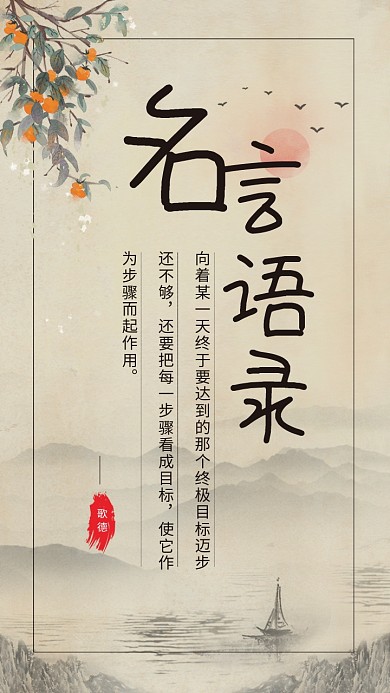 名言语录
向着某一天终于要达到的那个终极目标迈步
还不够，还要把每一步骤看成目标，使它作
为步骤而起作用。
歌德